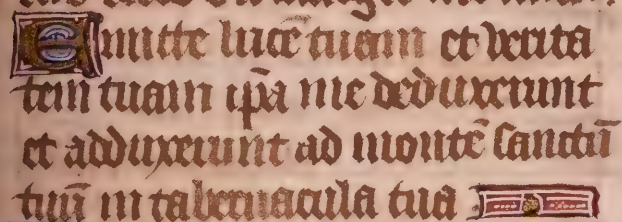 Emitte lucē tuam et verita
tem tuam ip̄a me deduxerunt
et adduxerunt ad montē sanctū
tuū in tabernacula tua